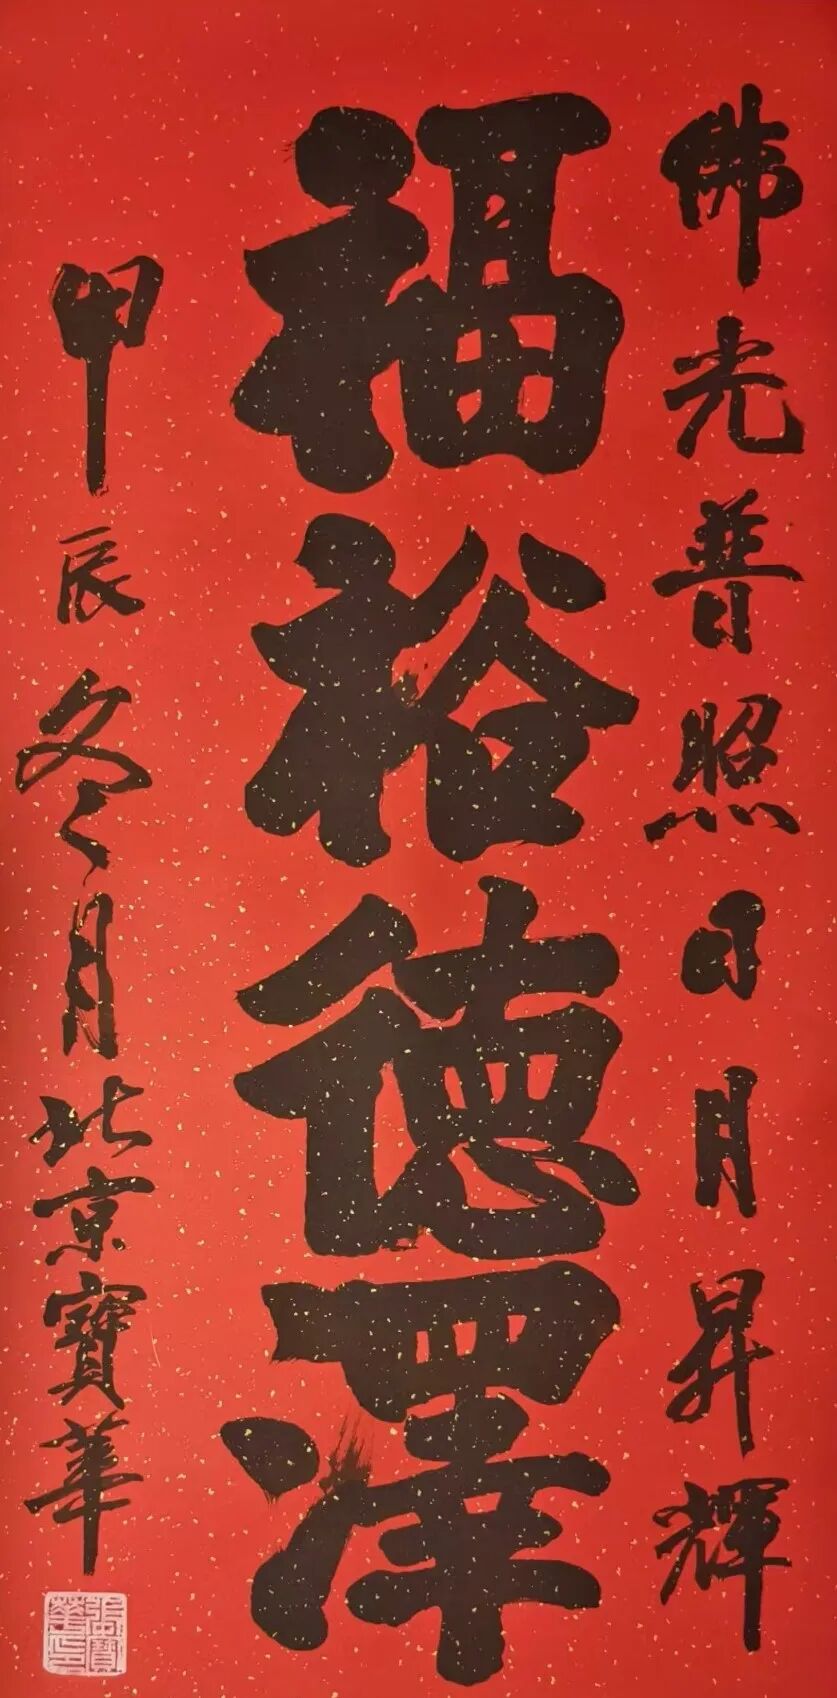 佛光普照日月昇輝
福裕德澤
甲辰冬月北京寶華
張寶華印